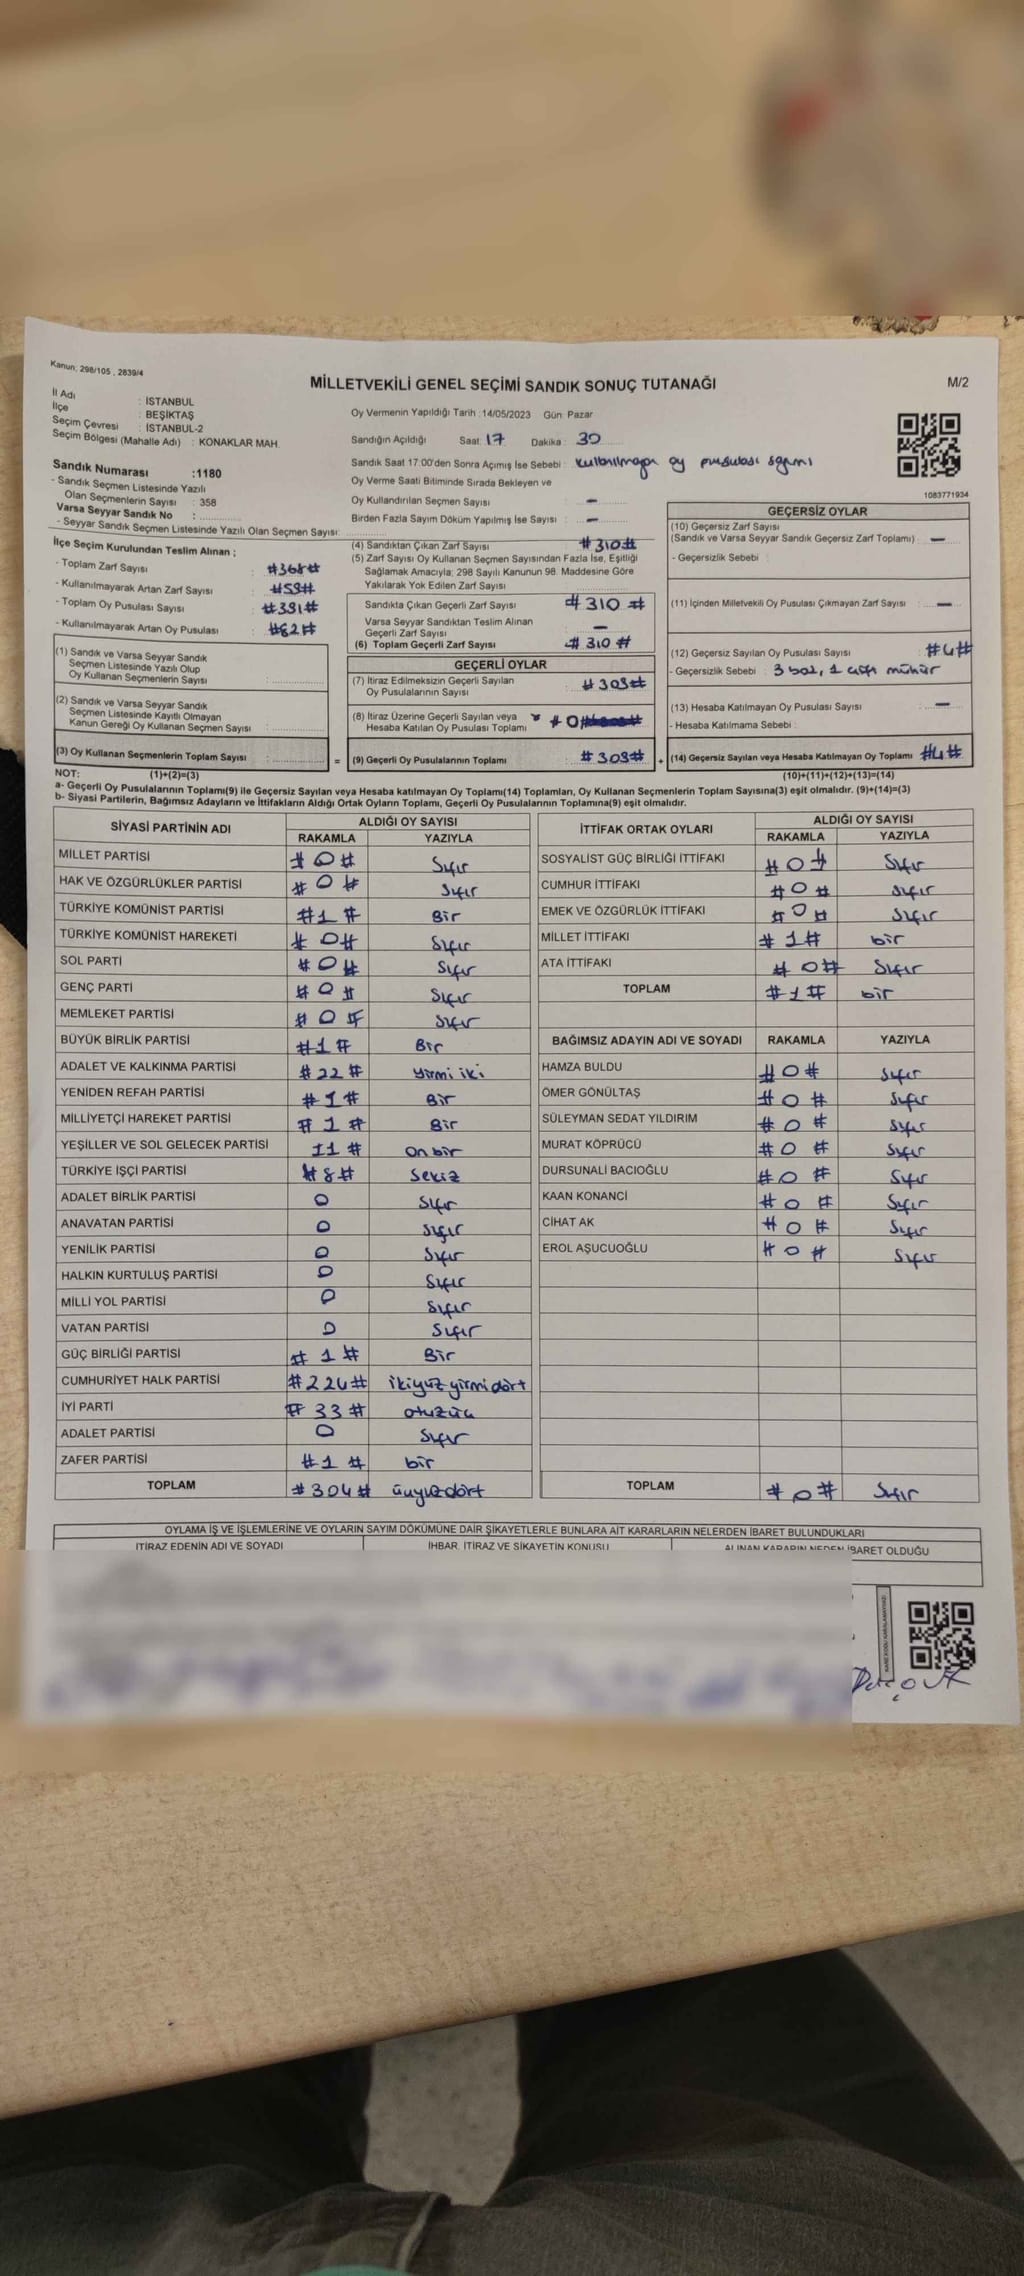 Kanun: 298/105, 2839/4
MİLLETVEKİLİ GENEL SEÇİMİ SANDIK SONUÇ TUTANAĞI
M/2
İl Adı : İSTANBUL
İlçe : BEŞİKTAŞ
Seçim Çevresi : İSTANBUL-2
Seçim Bölgesi (Mahalle Adı) : KONAKLAR MAH.
Sandık Numarası :1180
- Sandık Seçmen Listesinde Yazılı
Olan Seçmenlerin Sayısı : 358
Varsa Seyyar Sandık No :
- Seyyar Sandık Seçmen Listesinde Yazılı Olan Seçmen Sayısı:
Oy Vermenin Yapıldığı Tarih :14/05/2023 Gün: Pazar
Sandığın Açıldığı Saat: 17 Dakika : 30
Sandık Saat 17:00'den Sonra Açımış İse Sebebi : kullanılmayan oy pusulası sayımı
Oy Verme Saati Bitiminde Sırada Bekleyen ve
Oy Kullandırılan Seçmen Sayısı : -
Birden Fazla Sayım Döküm Yapılmış İse Sayısı : -
1083771934
İlçe Seçim Kurulundan Teslim Alınan ;
- Toplam Zarf Sayısı : #368#
- Kullanılmayarak Artan Zarf Sayısı :
- Toplam Oy Pusulası Sayısı :
- Kullanılmayarak Artan Oy Pusulası : #82#
(1) Sandık ve Varsa Seyyar Sandık
Seçmen Listesinde Yazılı Olup
Oy Kullanan Seçmenlerin Sayısı :
(2) Sandık ve Varsa Seyyar Sandık
Seçmen Listesinde Kayıtlı Olmayan
Kanun Gereği Oy Kullanan Seçmen Sayısı :
(3) Oy Kullanan Seçmenlerin Toplam Sayısı :
(4) Sandıktan Çıkan Zarf Sayısı : #310#
(5) Zarf Sayısı Oy Kullanan Seçmen Sayısından Fazla İse, Eşitliği
Sağlamak Amacıyla; 298 Sayılı Kanunun 98. Maddesine Göre
Yakılarak Yok Edilen Zarf Sayısı
Sandıkta Çıkan Geçerli Zarf Sayısı : #310#
Varsa Seyyar Sandıktan Teslim Alınan
Geçerli Zarf Sayısı : -
(6) Toplam Geçerli Zarf Sayısı : #310#
GEÇERLİ OYLAR
(7) İtiraz Edilmeksizin Geçerli Sayılan
Oy Pusulalarının Sayısı :
(8) İtiraz Üzerine Geçerli Sayılan veya
Hesaba Katılan Oy Pusulası Toplamı : #0#
= (9) Geçerli Oy Pusulalarının Toplamı :
GEÇERSİZ OYLAR
(10) Geçersiz Zarf Sayısı
(Sandık ve Varsa Seyyar Sandık Geçersiz Zarf Toplamı) : -
- Geçersizlik Sebebi :
(11) İçinden Milletvekili Oy Pusulası Çıkmayan Zarf Sayısı : -
(12) Geçersiz Sayılan Oy Pusulası Sayısı : #4#
- Geçersizlik Sebebi : 3 boş, 1 çift mühür
(13) Hesaba Katılmayan Oy Pusulası Sayısı : -
- Hesaba Katılmama Sebebi :
+ (14) Geçersiz Sayılan veya Hesaba Katılmayan Oy Toplamı #4#
NOT: (1)+(2)=(3) (10)+(11)+(12)+(13)=(14)
a- Geçerli Oy Pusulalarının Toplamı(9) ile Geçersiz Sayılan veya Hesaba katılmayan Oy Toplamı(14) Toplamları, Oy Kullanan Seçmenlerin Toplam Sayısına(3) eşit olmalıdır. (9)+(14)=(3)
b- Siyasi Partilerin, Bağımsız Adayların ve İttifakların Aldığı Ortak Oyların Toplamı, Geçerli Oy Pusulalarının Toplamına(9) eşit olmalıdır.
SİYASİ PARTİNİN ADI ALDIĞI OY SAYISI
RAKAMLA YAZIYLA
MİLLET PARTİSİ #0# Sıfır
HAK VE ÖZGÜRLÜKLER PARTİSİ #0# Sıfır
TÜRKİYE KOMÜNİST PARTİSİ #1# Bir
TÜRKİYE KOMÜNİST HAREKETİ #0# Sıfır
SOL PARTİ #0# Sıfır
GENÇ PARTİ #0# Sıfır
MEMLEKET PARTİSİ #0# Sıfır
BÜYÜK BİRLİK PARTİSİ #1# Bir
ADALET VE KALKINMA PARTİSİ #22# Yirmi iki
YENİDEN REFAH PARTİSİ #1# Bir
MİLLİYETÇİ HAREKET PARTİSİ #1# Bir
YEŞİLLER VE SOL GELECEK PARTİSİ 11# On bir
TÜRKİYE İŞÇİ PARTİSİ #8# Sekiz
ADALET BİRLİK PARTİSİ 0 Sıfır
ANAVATAN PARTİSİ 0 Sıfır
YENİLİK PARTİSİ 0 Sıfır
HALKIN KURTULUŞ PARTİSİ 0 Sıfır
MİLLİ YOL PARTİSİ 0 Sıfır
VATAN PARTİSİ 0 Sıfır
GÜÇ BİRLİĞİ PARTİSİ #1# Bir
CUMHURİYET HALK PARTİSİ #224# ikiyüz yirmi dört
İYİ PARTİ #33# otuzüç
ADALET PARTİSİ 0 Sıfır
ZAFER PARTİSİ #1# bir
TOPLAM #304# üçyüzdört
İTTİFAK ORTAK OYLARI ALDIĞI OY SAYISI
RAKAMLA YAZIYLA
SOSYALİST GÜÇ BİRLİĞİ İTTİFAKI #0# Sıfır
CUMHUR İTTİFAKI #0# Sıfır
EMEK VE ÖZGÜRLÜK İTTİFAKI #0# Sıfır
MİLLET İTTİFAKI #1# bir
ATA İTTİFAKI #0# Sıfır
TOPLAM #1# bir
BAĞIMSIZ ADAYIN ADI VE SOYADI RAKAMLA YAZIYLA
HAMZA BULDU #0# Sıfır
ÖMER GÖNÜLTAŞ #0# Sıfır
SÜLEYMAN SEDAT YILDIRIM #0# Sıfır
MURAT KÖPRÜCÜ #0# Sıfır
DURSUNALİ BACIOĞLU #0# Sıfır
KAAN KONANCİ #0# Sıfır
CİHAT AK #0# Sıfır
EROL AŞUCUOĞLU #0# Sıfır
TOPLAM #0# Sıfır
OYLAMA İŞ VE İŞLEMLERİNE VE OYLARIN SAYIM DÖKÜMÜNE DAİR ŞİKAYETLERLE BUNLARA AİT KARARLARIN NELERDEN İBARET BULUNDUKLARI
İTİRAZ EDENİN ADI VE SOYADI İHBAR, İTİRAZ VE ŞİKAYETİN KONUSU ALINAN KARARIN NEDEN İBARET OLDUĞU